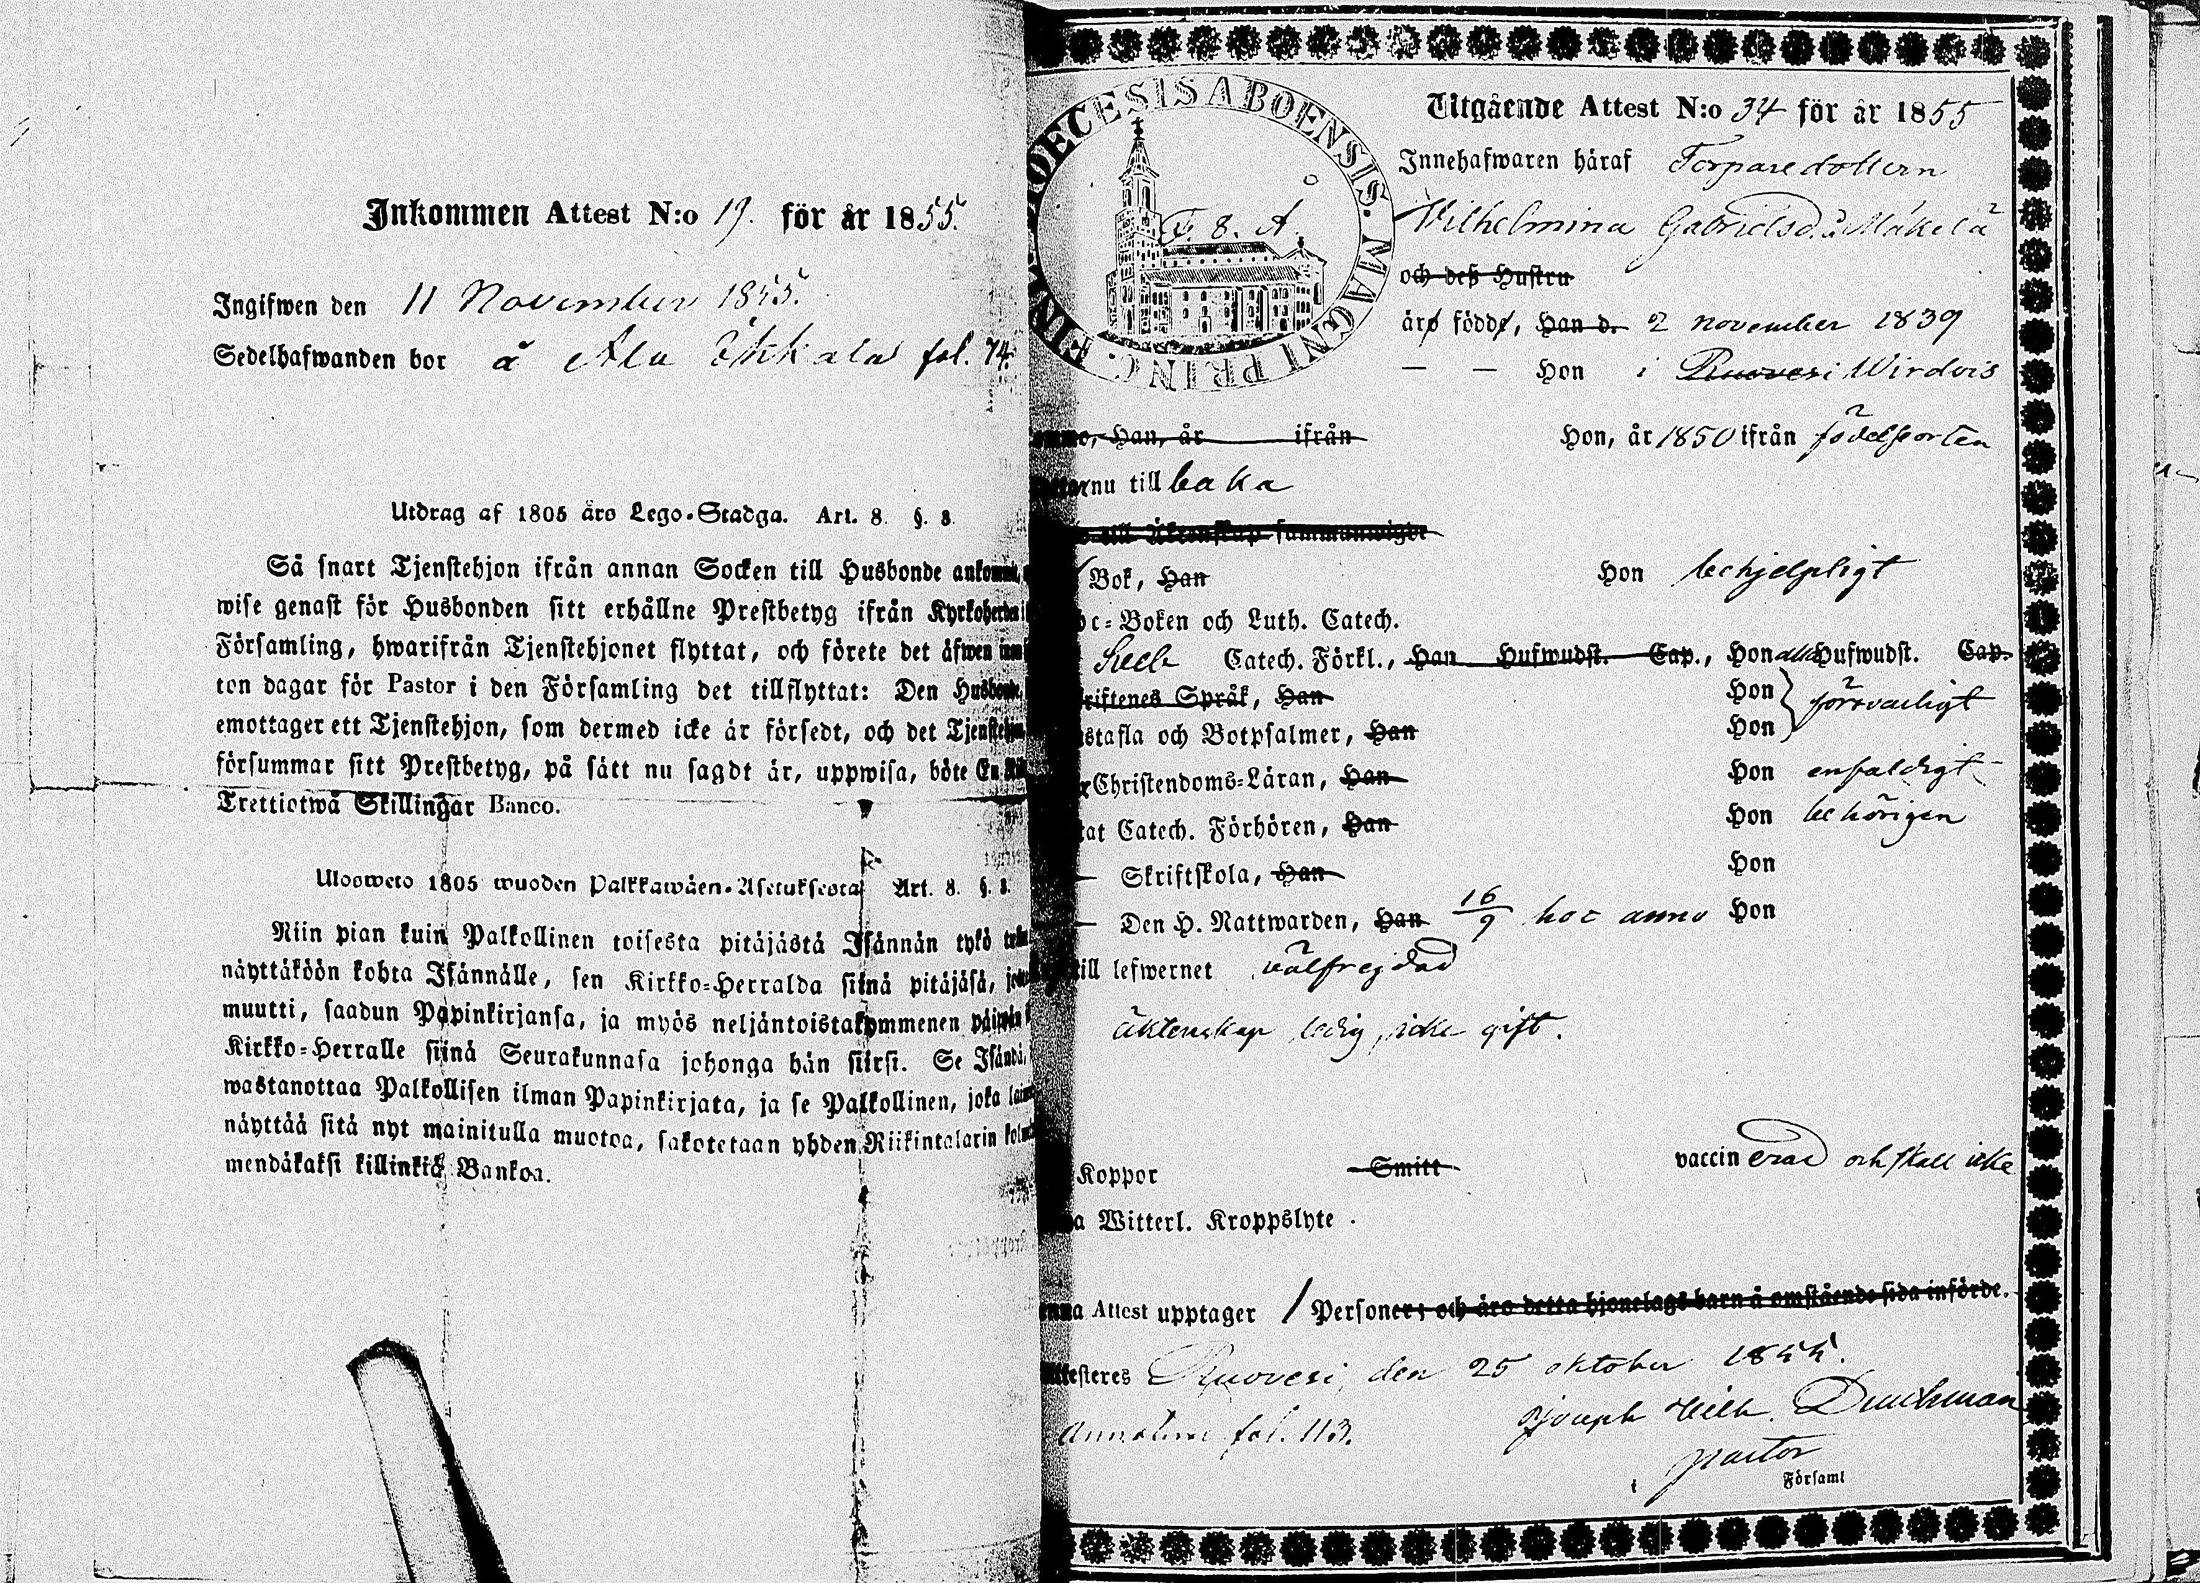 Inkommen Attest N:o 19. för år 1855.
Ingifwen den 11 November 1855.
Sedelhafwanden bor å Ala fol. 74.
Utdrag af 1805 års Lego-Stadga. Art. 8. §. 8.
Så snart Tjenstehjon ifrån annan Socken till Husbonde
wise genast för Husbonden sitt erhållne Prestbetyg ifrån
Församling, hwarifrån Tjenstehjonet flyttat, och förete det äfwen
ton dagar för Pastor i den Församling det tillflyttat: Den
emottager ett Tjenstehjon, som dermed icke är försedt, och det
försummar sitt Prestbetyg, på sätt nu sagdt är, uppwisa, böte En
Trettiotwå Skillingar Banco.
Ulosweto 1805 wuoden Palkkawäen-Asetuksesta Art. 8. §. 8.
Niin pian kuin Palkollinen toisesta pitäjästä Isännän tykö
näyttäköön kohta Isännälle, sen Kirkko-Herralda siinä pitäjäsä,
muutti, saadun Papinkirjansa, ja myös neljäntoistakymmenen päiwän
Kirkko-Herralle siinä Seurakunnasa johonga hän siirsi. Se Isändä,
wastanottaa Palkollisen ilman Papinkirjata, ja se Palkollinen, joka
näyttää sitä nyt mainitulla muotoa, sakotetaan yhden Riikintalarin
mendäkaksi killinkiä Bankoa.
DIOECESIS ABOENSIS. MAGNI PRINC. FINL.
F. 8. A.
Utgående Attest N:o 34 för år 1855
Innehafwaren häraf Torparedottern
Wilhelmina Gabrielsd. Mäkelä
och deß Hustru
äro födde, Han d. 2 november 1839
— — Hon i Ruovesi Wirdois
Han, år ifrån Hon, år 1850 ifrån födelseorten
nu tillbaka
till Äktenskap sammanwigde
Bok, Han Hon behjelpligt
c-Boken och Luth. Catech.
Sveb Catech. Förkl., Han Hufwudst. Cap., Hon alla Hufwudst. Cap.
Språk, Han Hon försvarligt
och Botpsalmer, Han Hon
Christendoms-Läran, Han Hon enfaldigt
Catech. Förhören, Han Hon behörigen
— Skriftskola, Han Hon
— Den H. Nattwarden, Han 16/9 hoc anno Hon
till lefwernet välfrejdad
äktenskap ledig, icke gift.
Koppor Smitt vaccinerad och skall icke
Witterl. Kroppslyte.
Attest upptager 1 Personer; och äro detta hjonelags barn å omstående sida införde.
Ruovesi, den 25 oktober 1855.
fol. 113. Joseph Wilh. Durchman
pastor
Församl